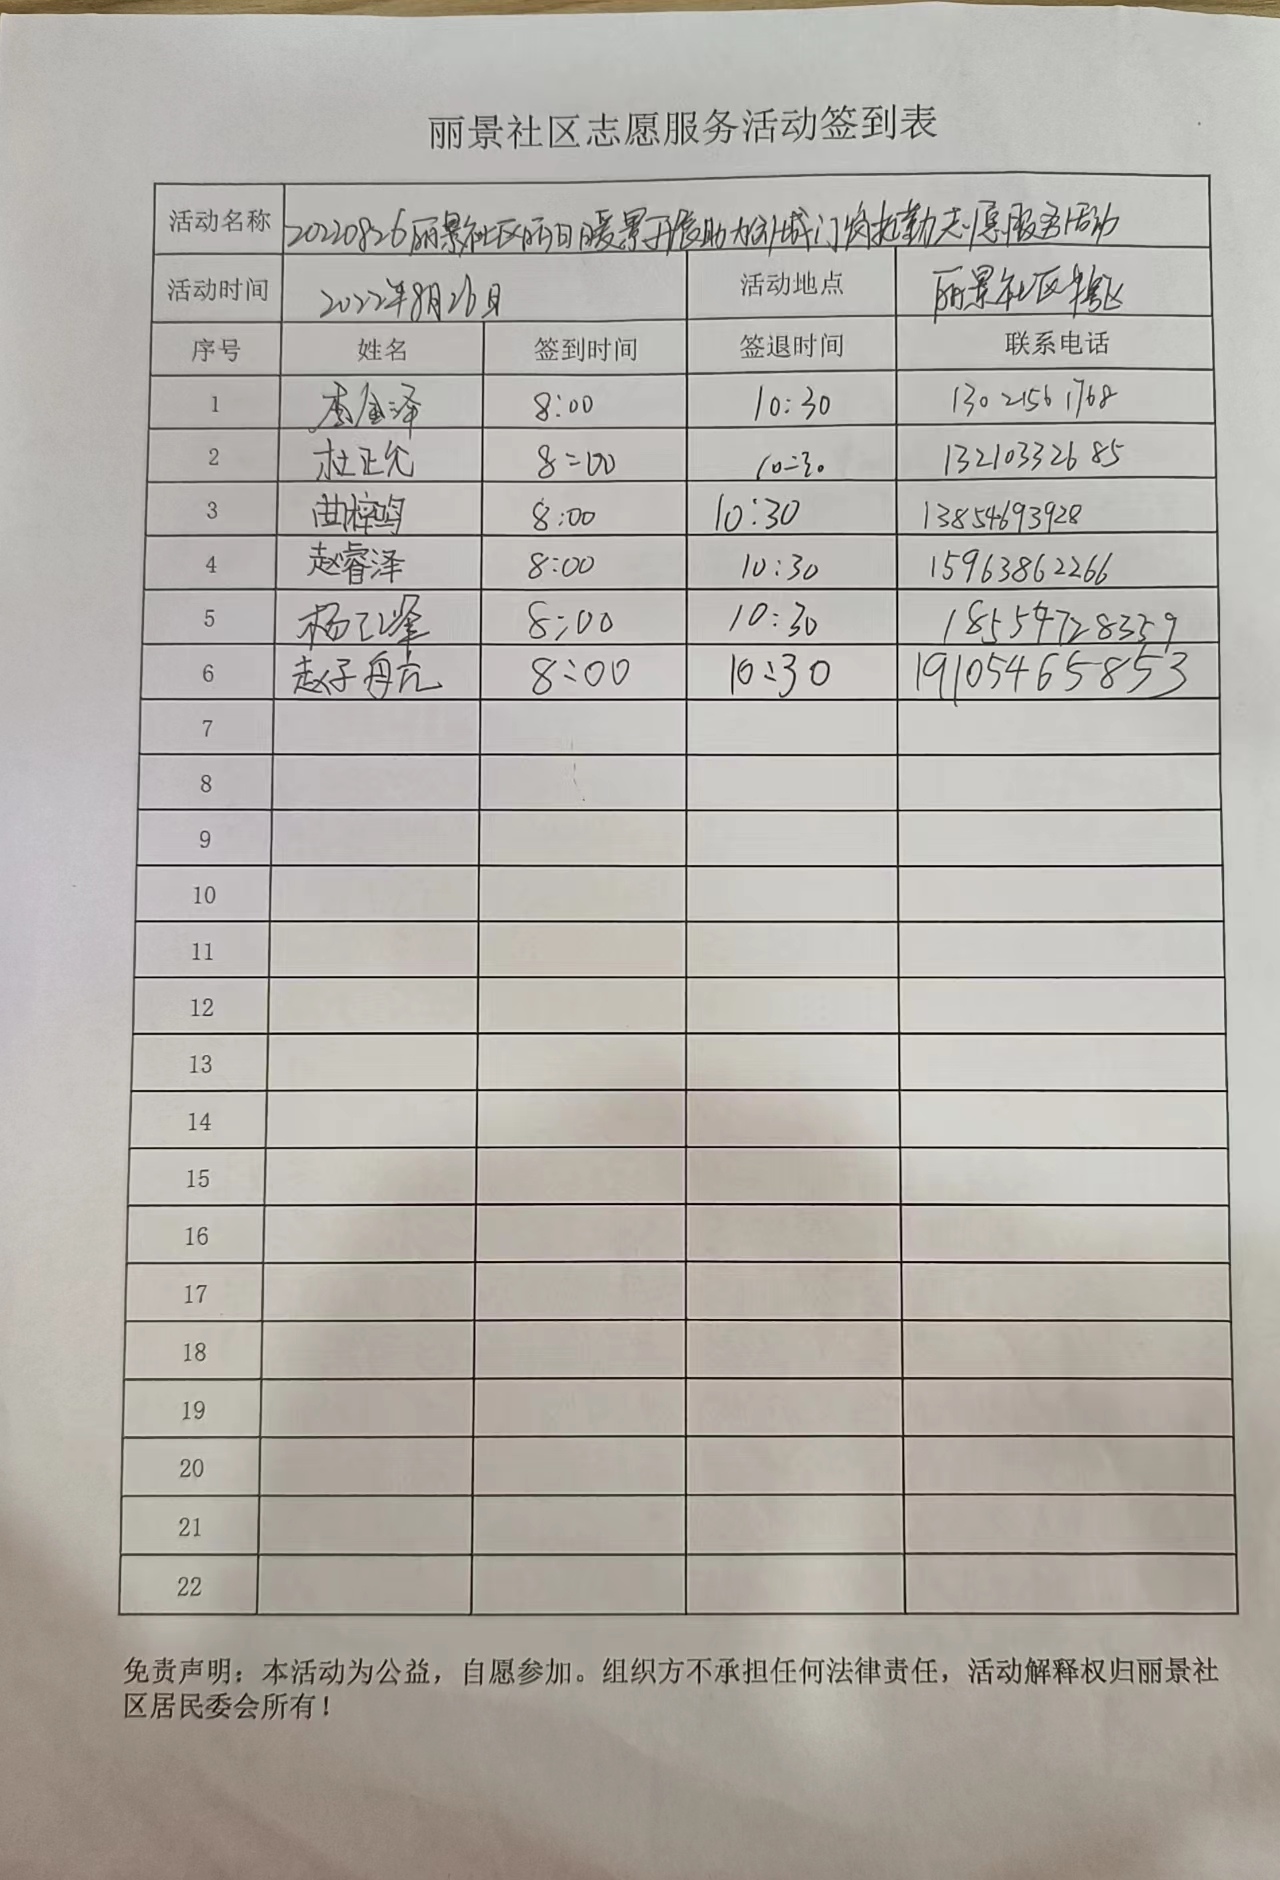 丽景社区志愿服务活动签到表
活动名称 20220826丽景社区丽日暖景开展助力创城门岗执勤志愿服务活动
活动时间 2022年8月26日 活动地点 丽景社区辖区
序号 姓名 签到时间 签退时间 联系电话
1 李金泽 8:00 10:30 13021561768
2 杜正允 8:00 10:30 13210332685
3 曲梓鸣 8:00 10:30 13854693928
4 赵睿泽 8:00 10:30 15963862266
5 杨 8:00 10:30 18554728359
6 赵子 8:00 10:30 19105465853
7
8
9
10
11
12
13
14
15
16
17
18
19
20
21
22
免责声明：本活动为公益，自愿参加。组织方不承担任何法律责任，活动解释权归丽景社
区居民委会所有！